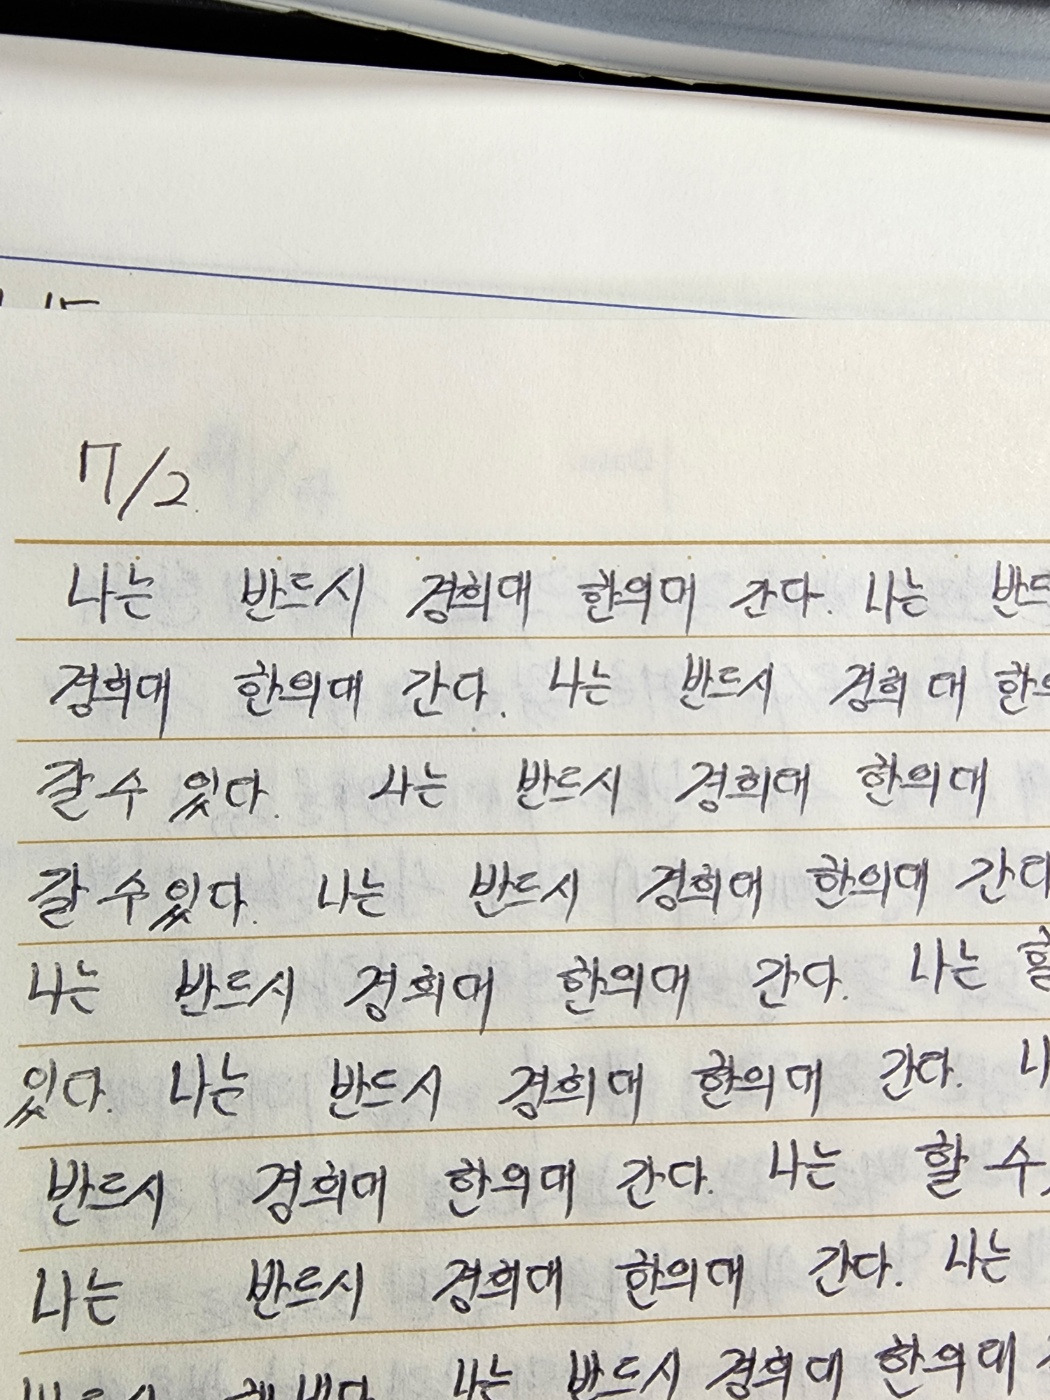 7/2.
나는 반드시 경희대 한의대 간다. 나는
경희대 한의대 간다. 나는 반드시 경희대
갈 수 있다. 나는 반드시 경희대 한의대
갈 수 있다. 나는 반드시 경희대 한의대
나는 반드시 경희대 한의대 간다. 나는
있다. 나는 반드시 경희대 한의대 간다.
반드시 경희대 한의대 간다. 나는 할 수
나는 반드시 경희대 한의대 간다. 나는
나는 반드시 경희대 한의대